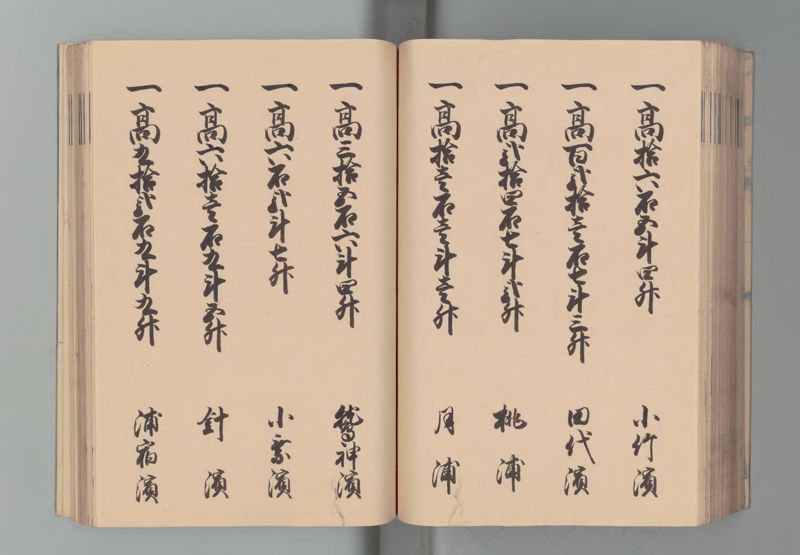 一高拾六石五斗四升 小竹濱
一高百弐拾壱石七斗三升 田代濱
一高弐拾四石七斗弐升 桃浦
一高拾壱石壱斗壱升 月浦
一高三拾五石六斗四升 鷲神濱
一高六石弐斗七升 小乗濱
一高六拾壱石九斗五升 針濱
一高九拾弐石九斗九升 浦宿濱